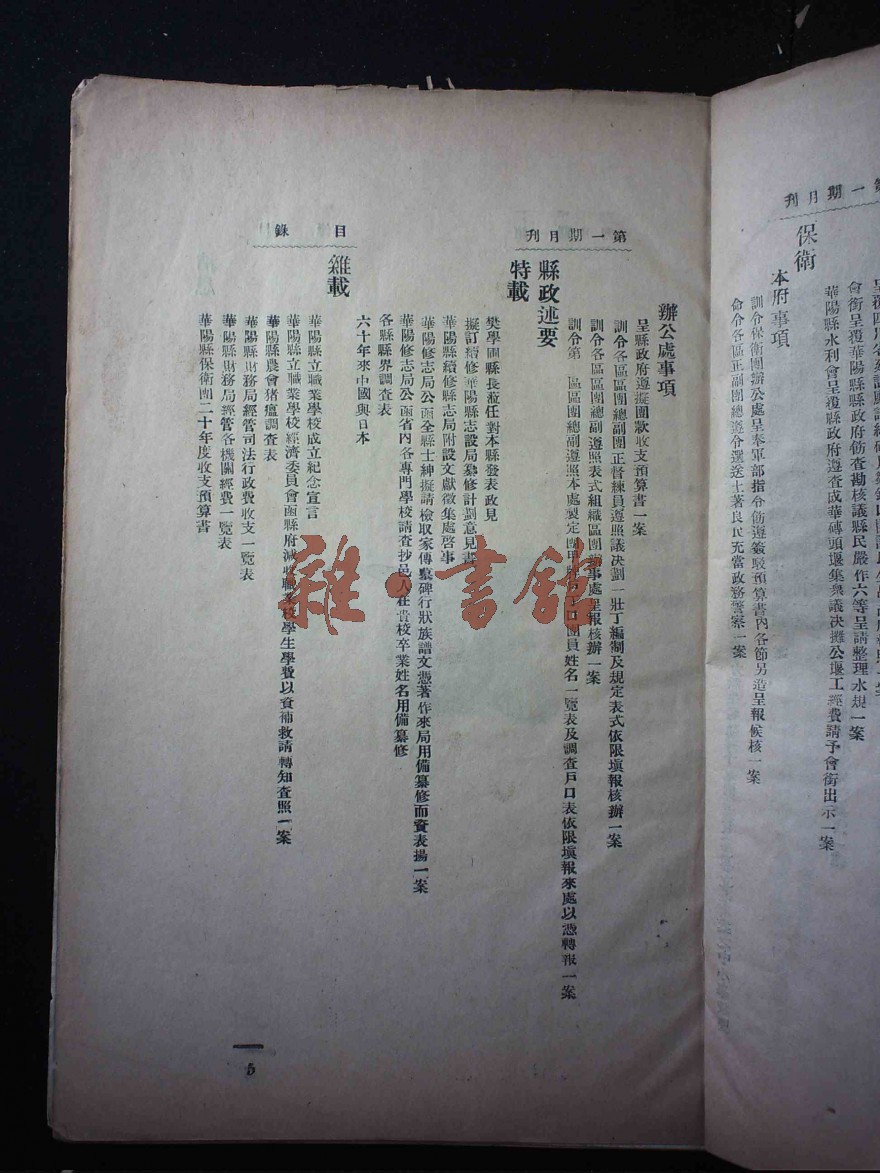 刊月期一第
保衛
本府事項
會銜呈覆華陽縣縣政府飭查勘核議縣民嚴作六等呈請整理水規一案
華陽縣水利會呈覆縣政府遵查成華磚頭堰集衆議決攤公堰工經費請予會銜出示一案
訓令保衛團辦公處呈奉軍部指令飭遵簽駁預算書內各節另造呈報候核一案
命令各區正副團總遵令選送土著良民充當政務警察一案
刊月期一第
辦公處事項
呈縣政府遵擬團欵收支預算書一案
訓令各區區團總副團正督練員遵照議決劃一壯丁編制及規定表式依限塡報核辦一案
訓令各區區團總副遵照表式組織區團辦事處呈報核辦一案
訓令第 區區團總副遵照本處製定團甲牌戶丁口團員姓名一覽表及調查戶口表依限塡報來處以憑轉報一案
縣政述要
特載
樊學圃縣長蒞任對本縣發表政見
擬訂續修華陽縣志設局纂修計劃意見書
華陽縣續修縣志局附設文獻徵集處啓事
華陽修志局公函全縣士紳擬請檢取家傳墓碑行狀族譜文憑著作來局用備纂修而資表揚一案
華陽修志局公函省內各專門學校請查抄邑人在貴校卒業姓名用備纂修
各縣縣界調查表
六十年來中國與日本
錄目
雜載
華陽縣立職業學校成立紀念宣言
華陽縣立職業學校經濟委員會函縣府減收職業校學生學費以資補救請轉知查照一案
華陽縣農會猪瘟調查表
華陽縣財務局經管司法行政費收支一覽表
華陽縣財務局經管各機關經費一覽表
華陽縣保衛團二十年度收支預算書
5
雜·書館